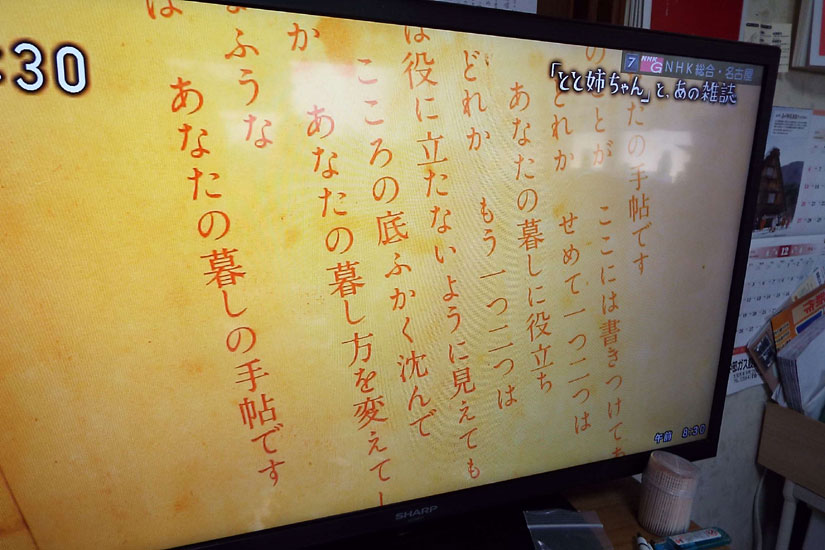 :30
7 NHK G NHK総合・名古屋
「とと姉ちゃん」と、あの雑誌
たの手帖です
のことが ここには書きつけてあ
どれか せめて一つ二つは
あなたの暮しに役立ち
どれか もう一つ二つは
は役に立たないように見えても
こころの底ふかく沈んで
か あなたの暮し方を変えてし
ふうな
は あなたの暮しの手帖です
午前 8:30
SHARP
12